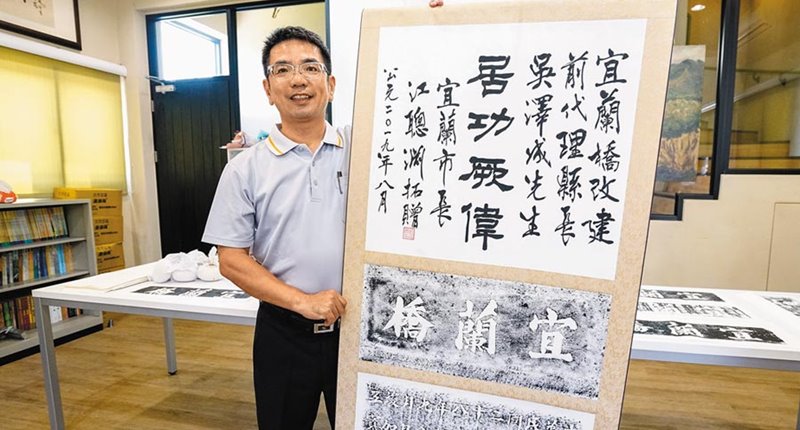 宜蘭橋改建
前代理縣長
吳澤成先生
居功厥偉
宜蘭市長
江聰淵拓贈
公元二〇一九年八月
宜蘭橋